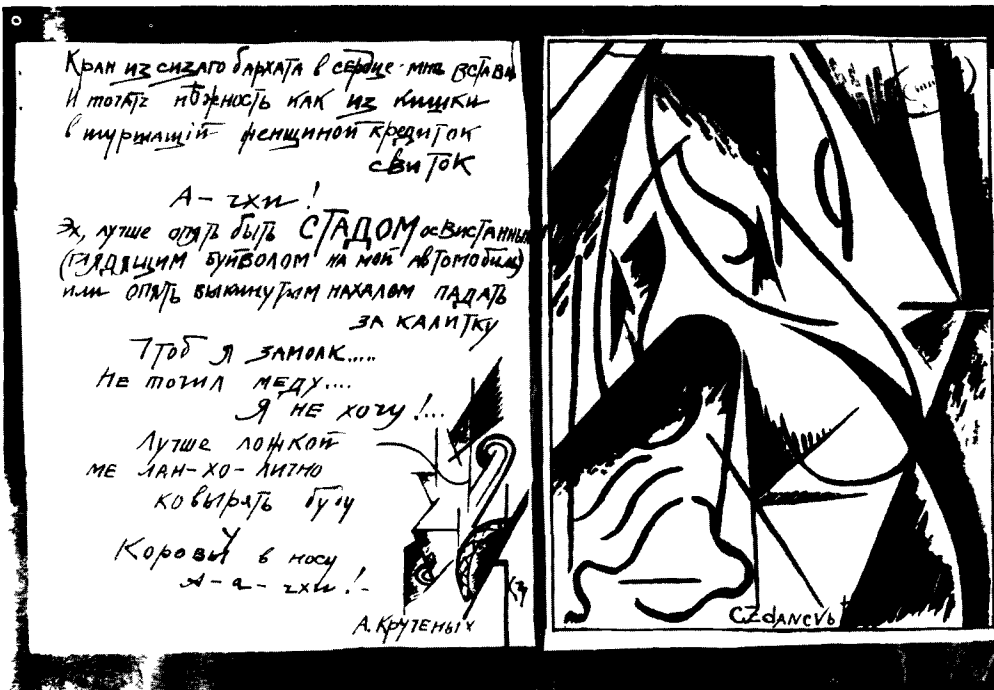 Кран из сизаго бархата в сердце мне встави
И точать нѣжность как из кишки
в шуршащій женщиной кредиток
свиток
А-чхи!
Эх, лучше опять быть СТАДОМ освистанным
(глядящим буйволом на мой автомобиль)
или опять выкинутым нахалом падать
за калитку
Чтоб я замолк.....
Не точил меду....
Я не хочу!...
Лучше ложкой
ме лан-хо-лично
ковырять буду
Коровы в носу
А-а-чхи!-
А. Крученых
C.ZdANCVb